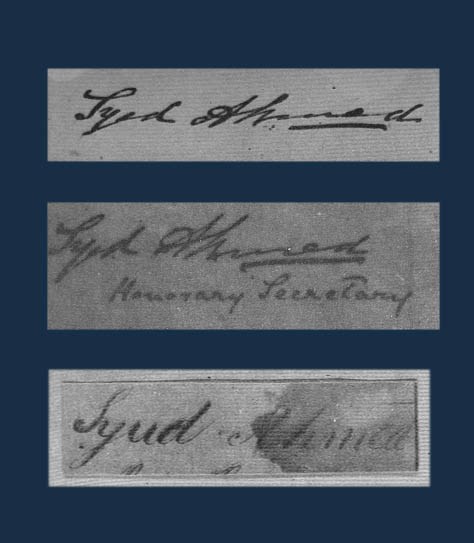 Syed Ahmed
Syed Ahmed
Honorary Secretary
Syud Ahmed